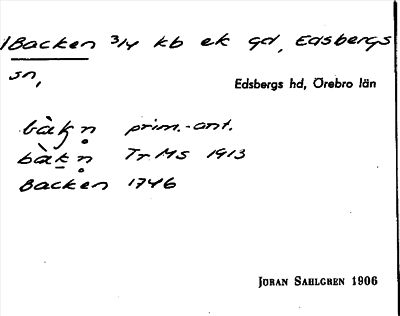 1 Backen 3/4 kb ek gd, Edsbergs
sn,
Edsbergs hd, Örebro län
bàkn̥ prim.-ant.
bàkn̥ Tr MS 1913
Backen 1746
JÖRAN SAHLGREN 1906